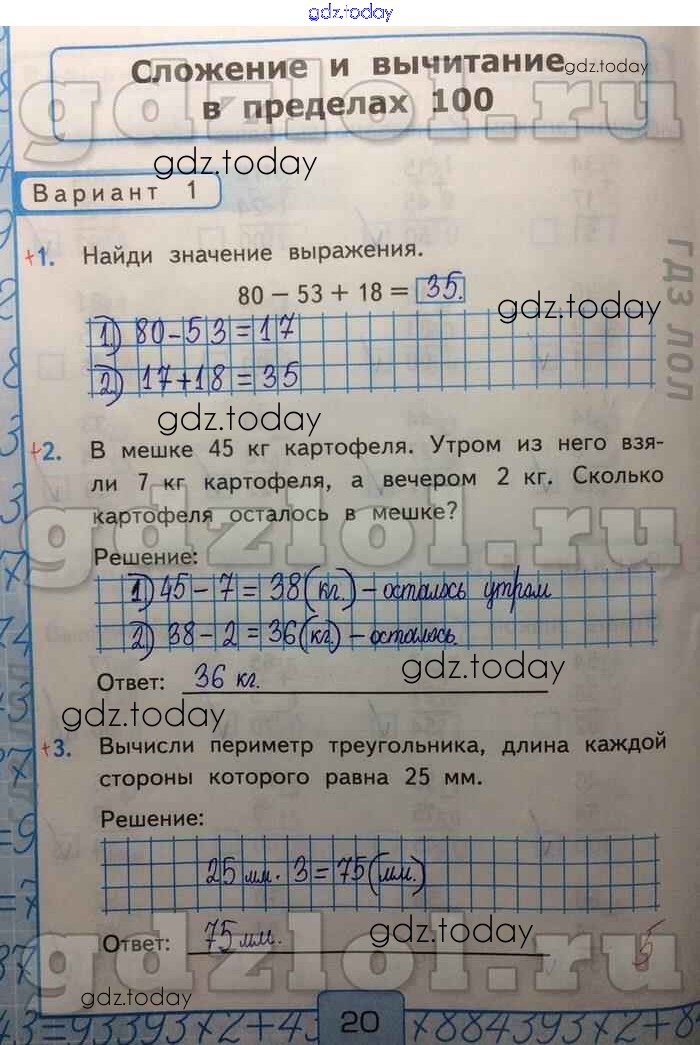 gdz.today
Сложение и вычитание
gdz.today
в пределах 100
gdzlol.ru
gdz.today
Вариант 1
+1. Найди значение выражения.
80 − 53 + 18 = 35.
gdz.today
гдз лол
1) 80-53=17
2) 17+18=35
gdz.today
+2. В мешке 45 кг картофеля. Утром из него взя-
ли 7 кг картофеля, а вечером 2 кг. Сколько
картофеля осталось в мешке?
gdzlol.ru
Решение:
1) 45-7=38(кг.)-осталось утром
2) 38-2=36(кг)-осталось.
gdz.today
Ответ: 36 кг.
gdz.today
+3. Вычисли периметр треугольника, длина каждой
стороны которого равна 25 мм.
Решение:
25 мм. 3=75(мм.)
Ответ: 75 мм.
gdz.today
5
gdzlol.ru
gdz.today
20
43=93393×2+43
×884393×2+8